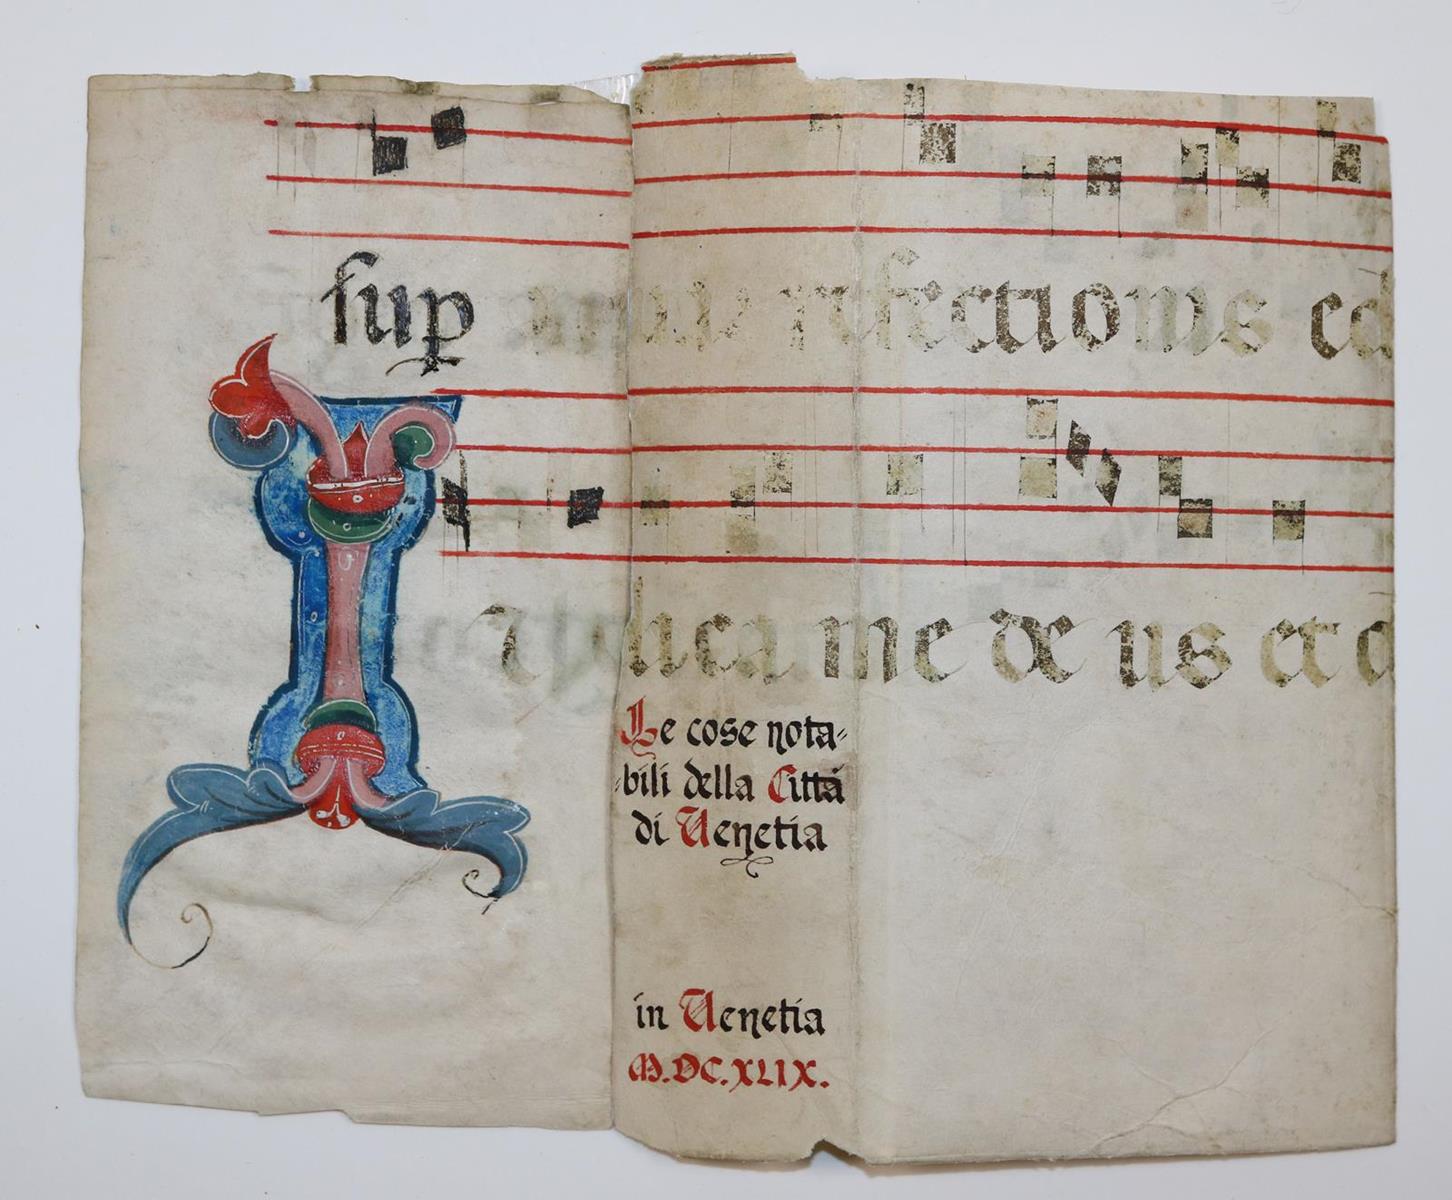 ſuꝑ refectionis ed
Iudica me de us et d
Le cose nota-
-bili della Città
di Venetia
in Venetia
M.DC.XLIX.